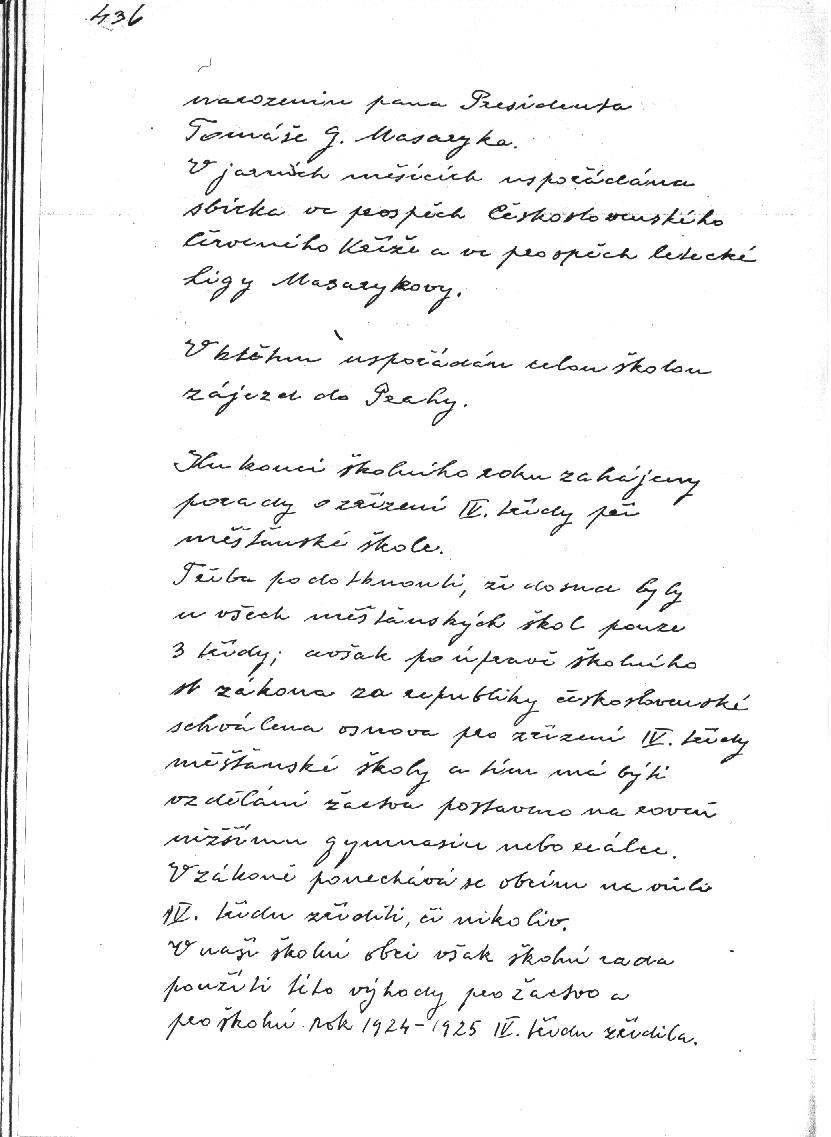 436
narozenin pana Presidenta
Tomáše G. Masaryka.
V jarních měsících uspořádána
sbírka ve prospěch Československého
červeného Kříže a ve prospěch letecké
ligy Masarykovy.
V květnu uspořádán celou školou
zájezd do Prahy.
Ku konci školního roku zahájeny
porady o zřízení IV. třídy při
měšťanské škole.
Třeba podotknouti, že dosud byly
u všech měšťanských škol pouze
3 třídy; avšak po úpravě školního
zákona za republiky československé
schválena osnova pro zřízení IV. třídy
měšťanské školy a tím má býti
vzdělání žactva postaveno na roveň
nižšímu gymnasiu nebo reálce.
V zákoně ponechává se obcím na vůli
IV. třídu zříditi, či nikoliv.
V naší školní obci však školní rada
použití této výhody pro žactvo a
pro školní rok 1924-1925 IV. třídu zřídila.